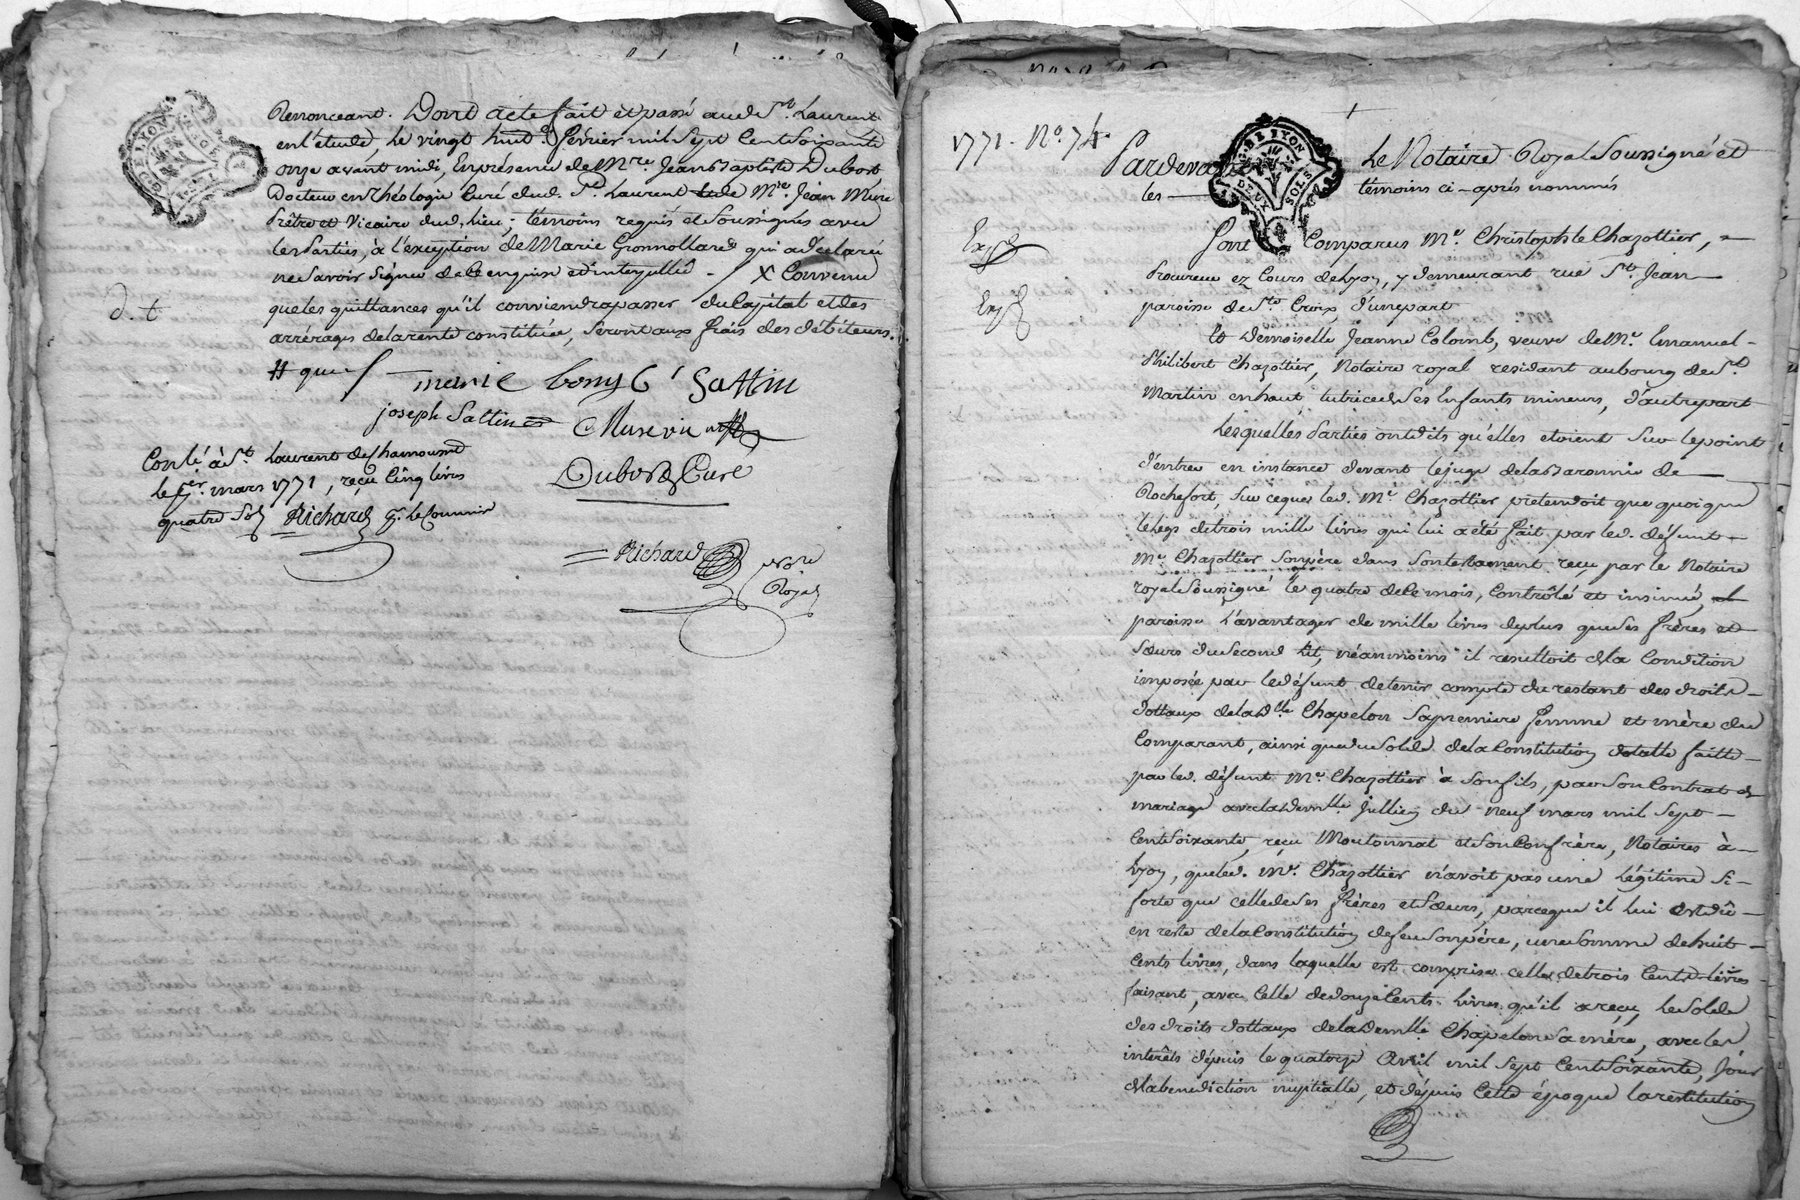 Renonceant. Dont acte fait et passé aud. St. Laurent
en l'étude, le vingt huit février mil Sept Cent Soixante
onze avant midi, En présence de Mre. Jean Baptiste Dubost
Docteur en théologie Curé dud. St. Laurent et de Mre. Jean Mure
Prêtre et Vicaire dud. lieu; témoins requis et Soussignés avec
les Parties, à l'exception de Marie qui a declaré
ne Savoir Signer de ce enquise et interpellée - / X Convenu
d. t
que les quittances qu'il conviendra passer du Capital et des
arrérages de la rente constituée, Seront aux frais des débiteurs.
# que
marie bony Sattin
joseph Sattin Mure vic
Conlé à St. Laurent de Chamousset
le 1er. mars 1771, reçu Cinq livres
quatre Sols Richard
Dubost Curé
Richard
Nore
Royal
G. DE LYON
1771. No. 74.
Pardevant le Notaire Royal Soussigné et
les témoins ci-après nommés
G. DE LYON
DEUX SOLS
Exp
Exp
Sont Comparus Me. Christophle Chazottier,
Procureur ez Cours de Lyon, y demeurant rue St. Jean
paroisse de Ste. Croix, d'une part
Et Demoiselle Jeanne Colomb, veuve de Me. Emanuel
Philibert Chazottier, Notaire royal residant au bourg de St.
Martin en haut tutrice de Ses Enfants mineurs, d'autre part
Lesquelles Parties ont dits qu'elles etoient Sur le point
d'entrer en instance devant le juge de la Baronnie de
Rochefort, Sur ce que led. Me. Chazottier pretendoit que quoique
le legs de trois mille livres qui lui a été fait par led. défunt
Me. Chazottier Son père dans Son testament reçu par le Notaire
royal Soussigné le quatre de ce mois, Contrôlé et insinué,
paroisse l'avantager de mille livres de plus que Ses frères et
Sœurs du Second lit, néanmoins il resultoit de la Condition
imposée par le défunt de tenir compte du restant des droits
dottaux de la Dlle. Chapelon Sa premiere femme et mère du
Comparant, ainsi que du Solde de la Constitution dotalle faitte
par led. défunt Me. Chazottier à Son fils, par Son Contrat de
mariage avec la Demlle. Jullien du neuf mars mil Sept
Cent Soixante, reçu Moutonnat et Son Confrère, Notaires à
Lyon, que led. Me. Chazottier n'avoit pas une légitime Si
forte que celle de Ses frères et Sœurs, parce que il lui est dû
en reste de la Constitution de feu Son père, une Somme de huit
Cents livres, dans laquelle est comprise celle de trois Cents livres
faisant, avec Celle de douze Cents livres qu'il a reçu, le Solde
des droits dottaux de la Demlle. Chapelon Sa mère, avec les
interêts depuis le quatorze Avril mil Sept Cent Soixante, Jour
de la benediction nuptialle, et depuis Cette époque la restitution